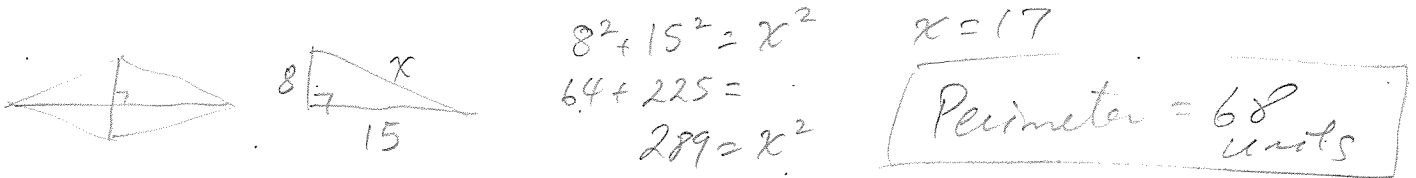 8
x
15
8² + 15² = x²
64 + 225 =
289 = x²
x = 17
Perimeter = 68
units